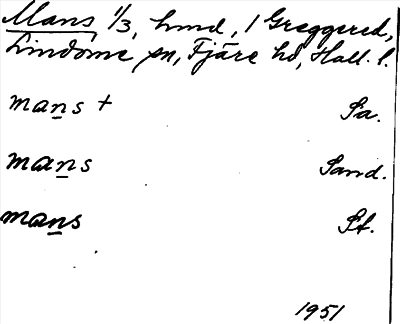 Mans 1/3, hmd, 1 Greggered,
Lindome sn, Fjäre hd, Hall. l.
mans + Sa.
mans Sand.
mans St.
1951